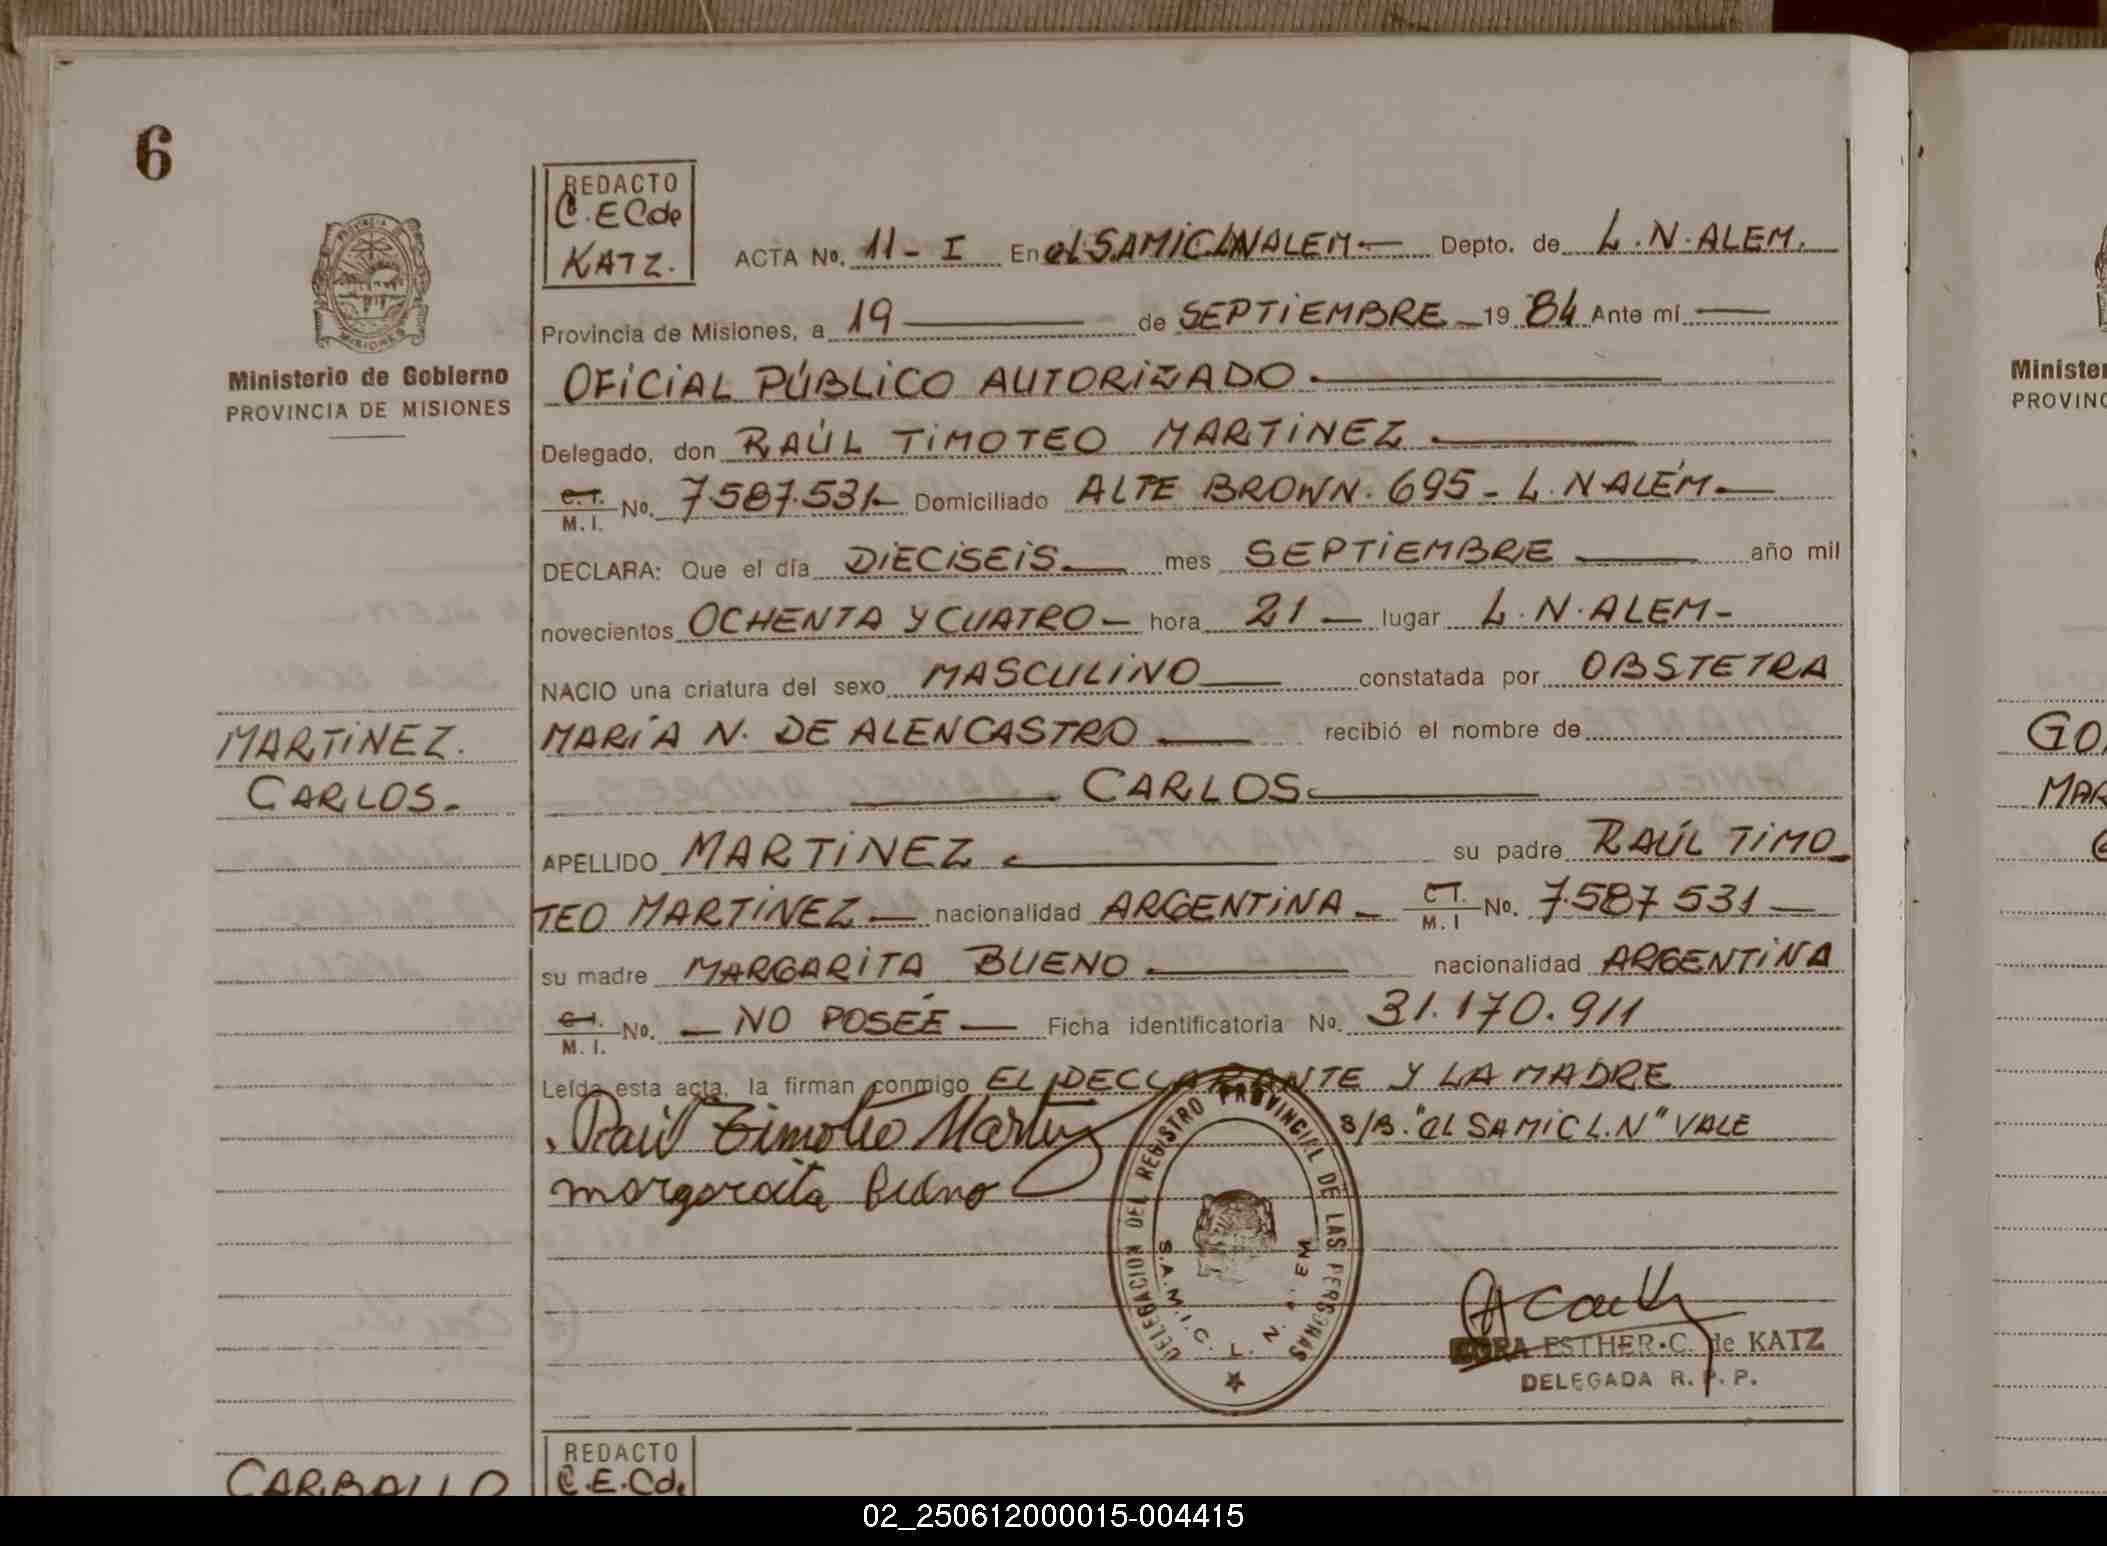 6
REDACTO
C.E.C de
KATZ.
ACTA No. 11 - I En el SAMIC L.N ALEM - Depto. de L.N.ALEM.
Provincia de Misiones, a 19 de SEPTIEMBRE 19 84 Ante mí
OFICIAL PÚBLICO AUTORIZADO.
Ministerio de Gobierno
PROVINCIA DE MISIONES
Delegado, don RAÚL TIMOTEO MARTINEZ.
C.I. M.I. No. 7.587.531- Domiciliado ALTE BROWN. 695 - L.N.ALÉM.
DECLARA: Que el día DIECISEIS mes SEPTIEMBRE año mil
novecientos OCHENTA Y CUATRO - hora 21 - lugar L.N.ALEM-
NACIO una criatura del sexo MASCULINO constatada por OBSTETRA
MARÍA N. DE ALENCASTRO recibió el nombre de
MARTINEZ.
CARLOS.
CARLOS.
APELLIDO MARTINEZ su padre RAÚL TIMO
TEO MARTINEZ - nacionalidad ARGENTINA - C.I. M.I No. 7.587 531 -
su madre MARGARITA BUENO nacionalidad ARGENTINA
C.I. M.I. No. - NO POSÉE - Ficha identificatoria No. 31.170.911
Leída esta acta, la firman conmigo EL DECLARANTE Y LA MADRE
Raúl Timoteo Martinez S/B. "el SAMIC L.N" VALE
margarita Bueno
DELEGACION DEL REGISTRO PROVINCIAL DE LAS PERSONAS
S.A.M.I.C. L. N. A. EM
CORA ESTHER C. de KATZ
DELEGADA R. P. P.
CARBALLO
REDACTO
C.E.C de
Minister
PROVINC
GO
MAR
02_250612000015-004415